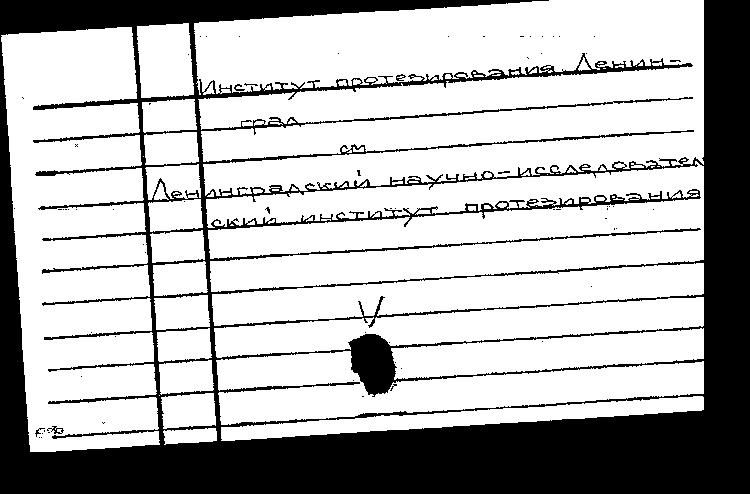 Институт протезирования. Ленин-
град
см
Ленинградский научно-исследовател
ский институт протезирования